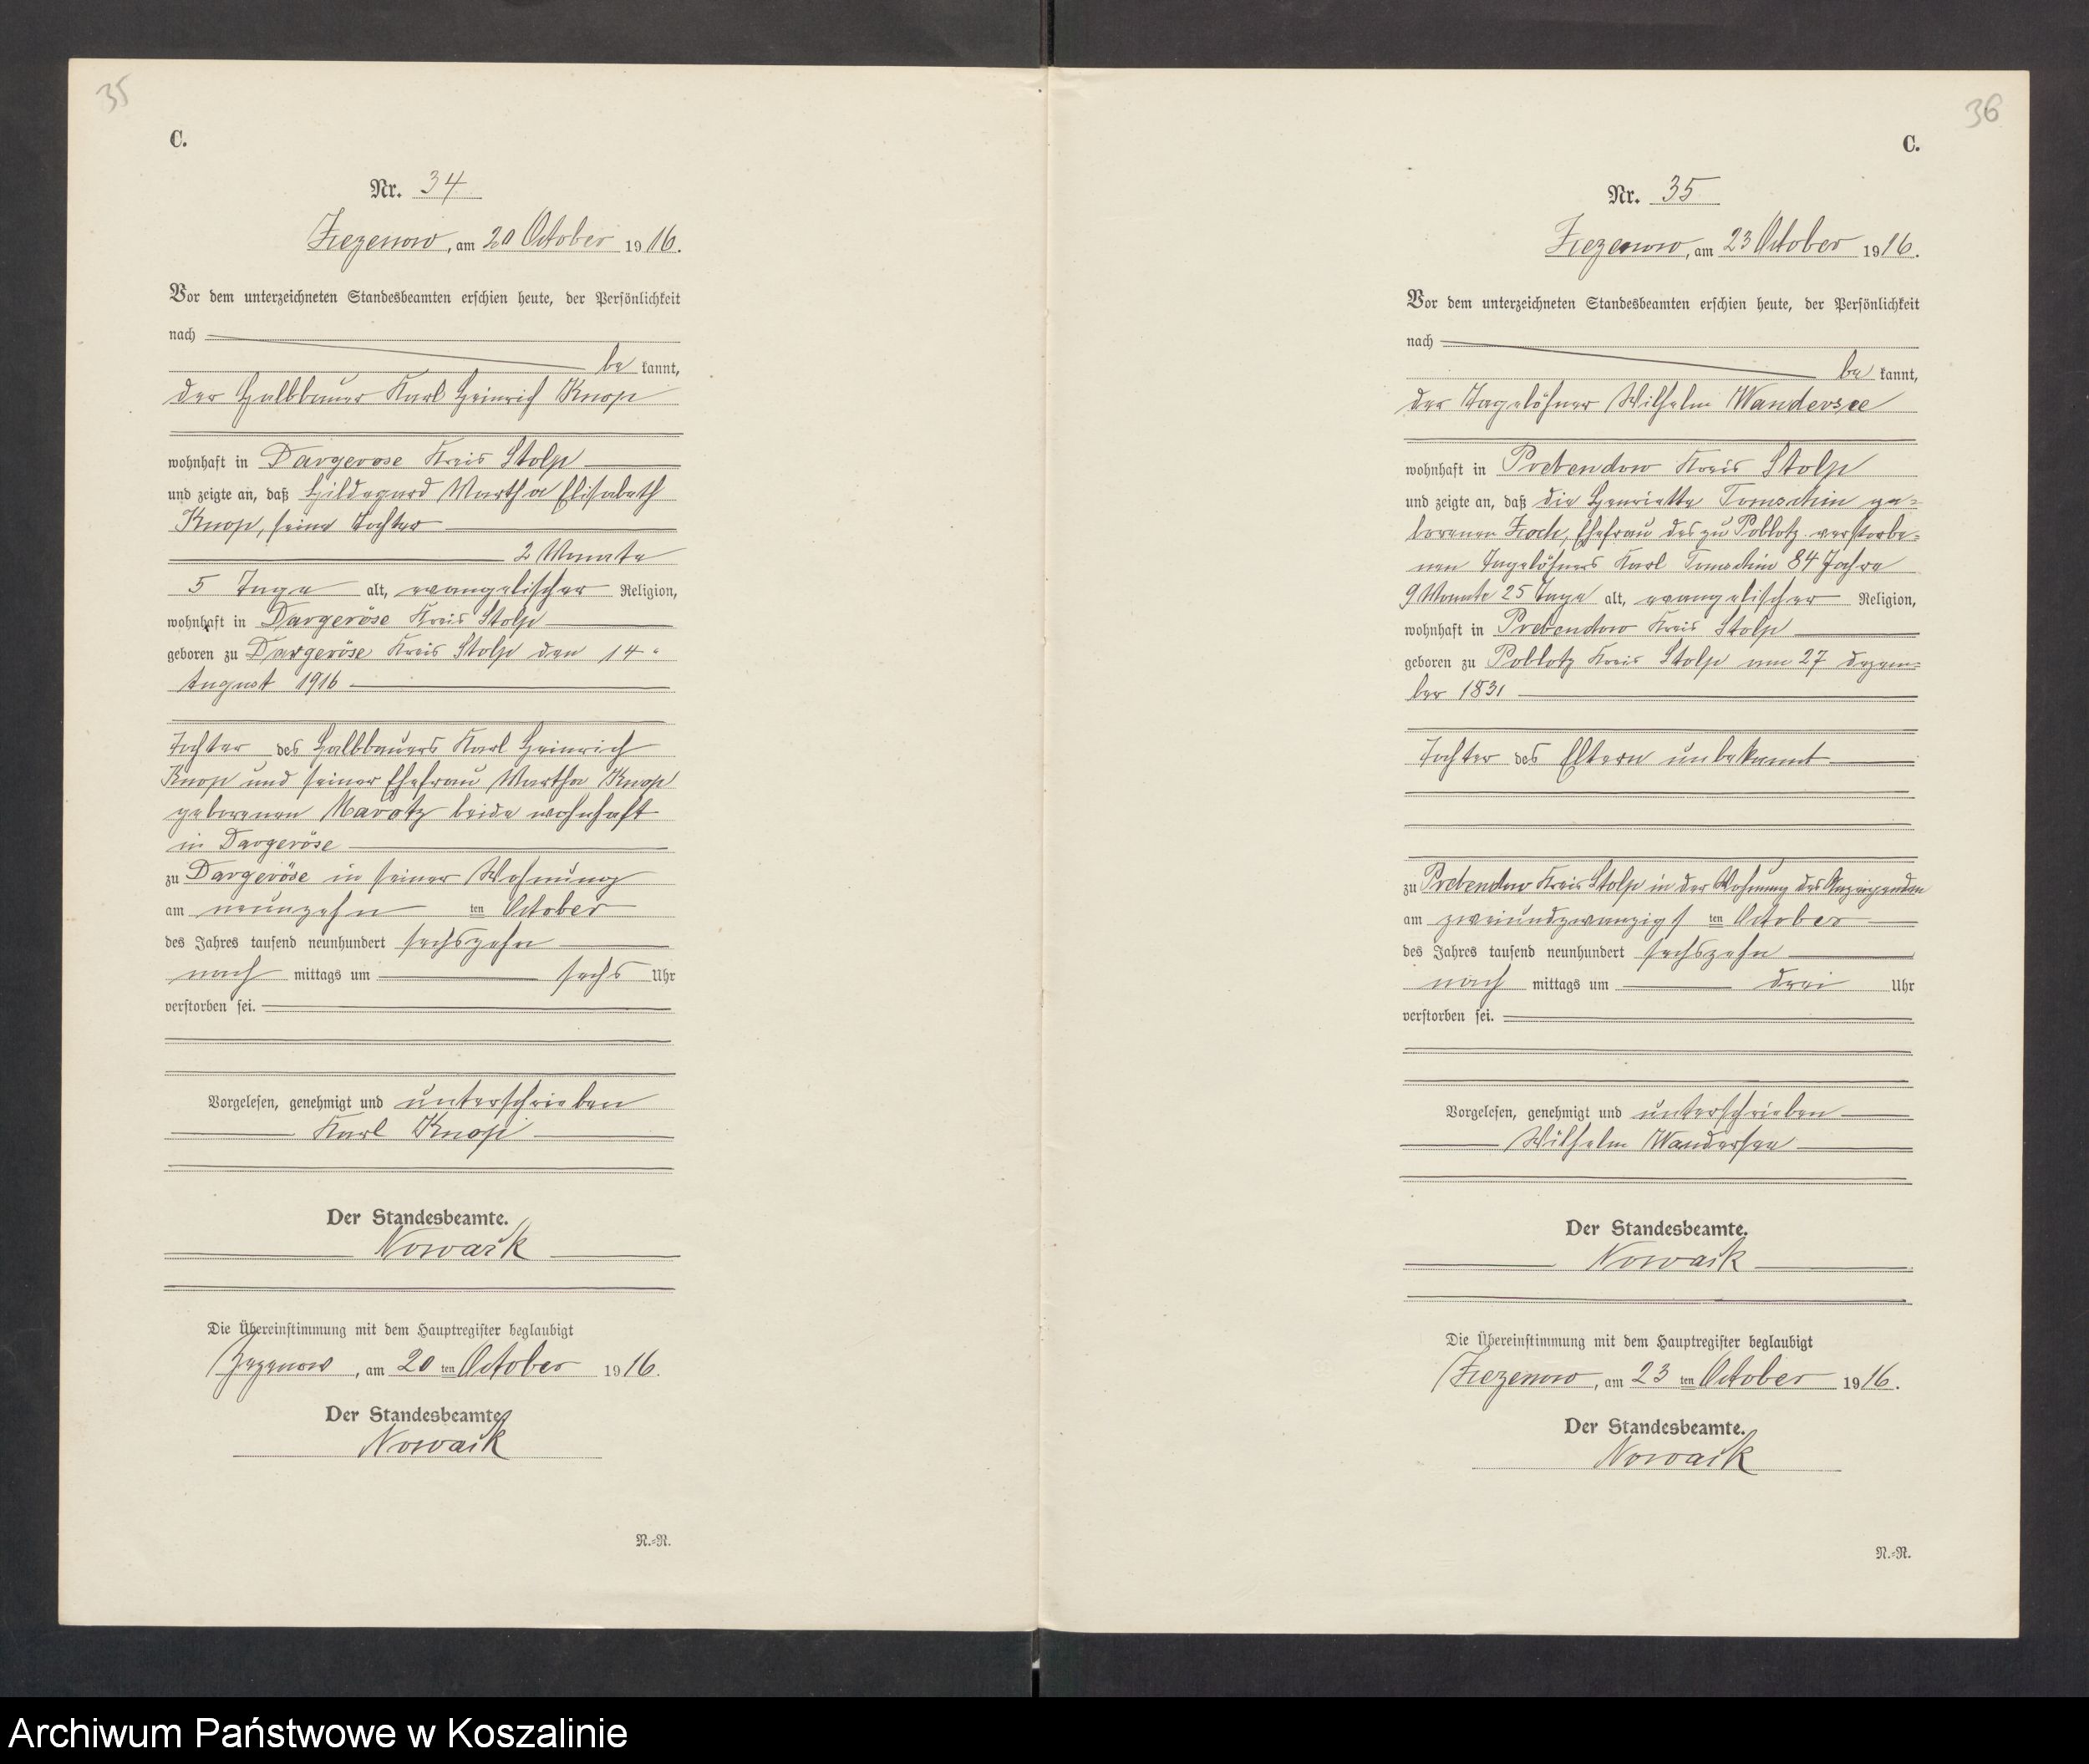 35
C.
Nr. 34
Zezenow, am 20 October 1916.
Vor dem unterzeichneten Standesbeamten erschien heute, der Persönlichkeit
nach
be kannt,
der Halbbauer Karl Heinrich Knop
wohnhaft in Dargerose Kreis Stolp
und zeigte an, daß Hildegard Martha Elisabeth
Knop, seine Tochter
2 Monate
5 Tage alt, evangelischer Religion,
wohnhaft in Dargeröse Kreis Stolp
geboren zu Dargeröse Kreis Stolp den 14.
August 1916
Tochter des Halbbauers Karl Heinrich
Knop und seiner Ehefrau Martha Knop
geborenen Marotz beide wohnhaft
in Dargeröse
zu Dargeröse in seiner Wohnung
am neunzehn ten October
des Jahres tausend neunhundert sechszehn
nach mittags um sechs Uhr
verstorben sei.
Vorgelesen, genehmigt und unterschrieben
Karl Knop
Der Standesbeamte.
Nowack
Die Übereinstimmung mit dem Hauptregister beglaubigt
Zezenow, am 20 ten October 1916.
Der Standesbeamte
Nowack
N.=R.
36
C.
Nr. 35
Zezenow, am 23 October 1916.
Vor dem unterzeichneten Standesbeamten erschien heute, der Persönlichkeit
nach
be kannt,
der Tagelöhner Wilhelm Wandersee
wohnhaft in Prebendow Kreis Stolp
und zeigte an, daß die Henriette Tomschin ge=
borenen Zoch, Ehefrau des zu Poblotz verstorbe=
nen Tagelöhners Karl Tomschin 84 Jahre
9 Monate 25 Tage alt, evangelischer Religion,
wohnhaft in Prebendow Kreis Stolp
geboren zu Poblotz Kreis Stolp am 27 Dezem=
ber 1831
Tochter des Eltern unbekannt
zu Prebendow Kreis Stolp in der Wohnung des Anzeigenden
am zweiundzwanzigs ten October
des Jahres tausend neunhundert sechszehn
nach mittags um drei Uhr
verstorben sei.
Vorgelesen, genehmigt und unterschrieben
Wilhelm Wandersee
Der Standesbeamte.
Nowack
Die Übereinstimmung mit dem Hauptregister beglaubigt
Zezenow, am 23 ten October 1916.
Der Standesbeamte.
Nowack
N.=R.
Archiwum Państwowe w Koszalinie